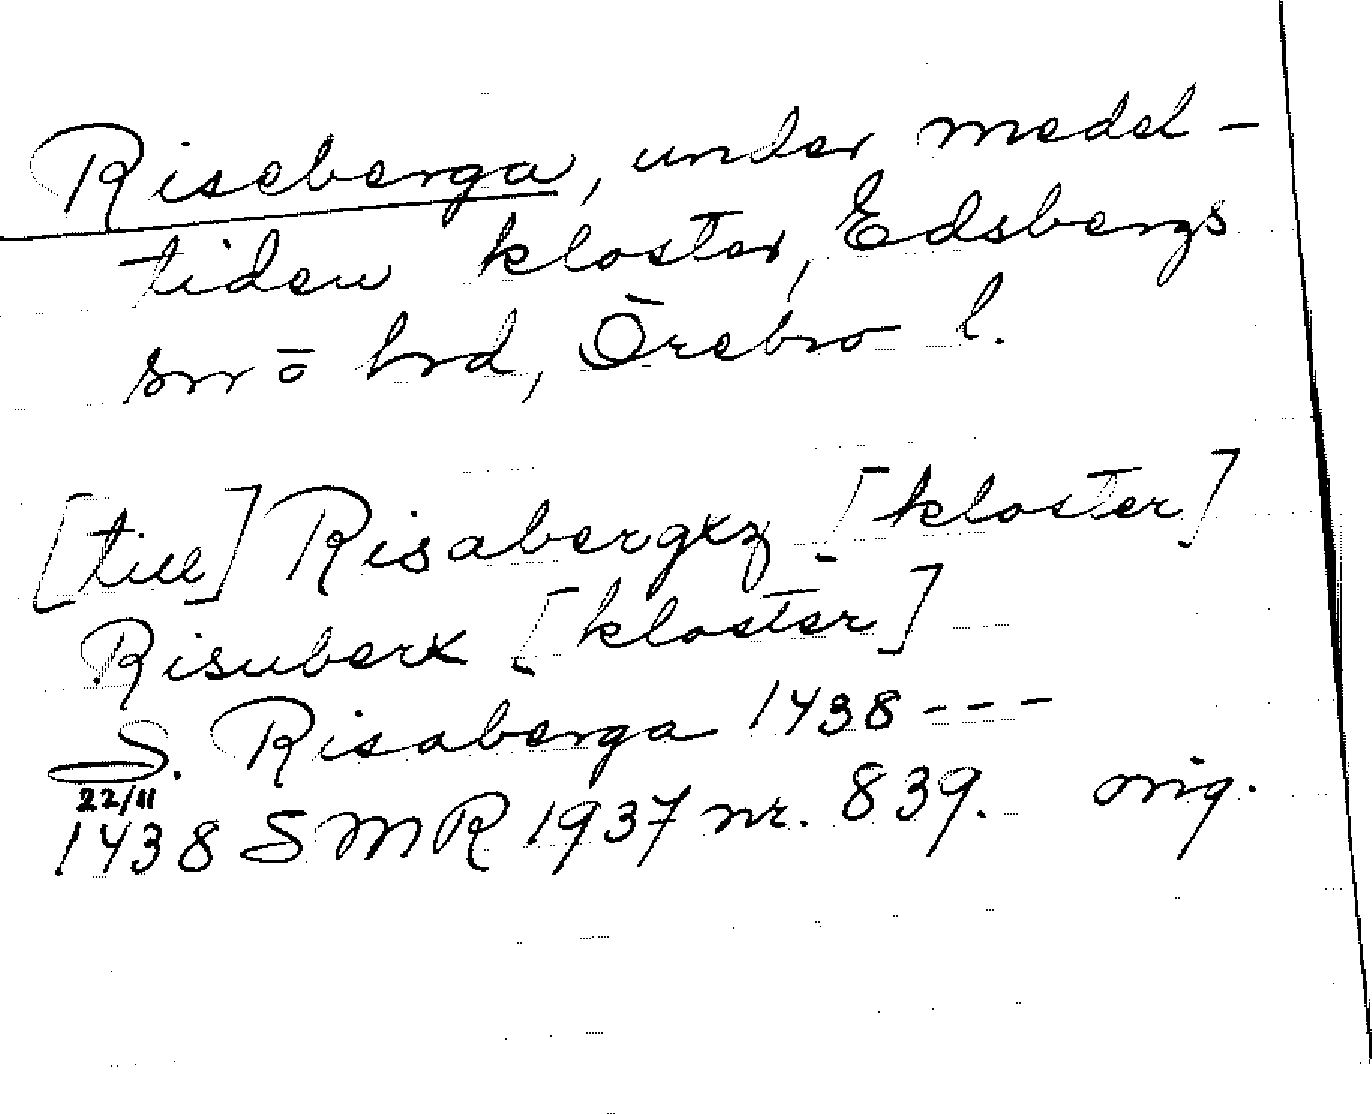 Riseberga, under medel-
tiden kloster, Edsbergs
sn o hd, Örebro l.
[till] Risabergxz [kloster]
Risuberx [kloster]
S. Risaberga 1438 ---
22/11
1438 SMR 1937 nr. 839. orig.